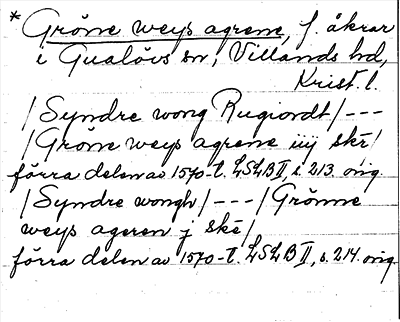 * Gröne weys agrene, f. åkrar
i Gualövs sn, Villands hd,
Krist. l.
/Syndre wong Rugiordt/ - - -
/Gröne weys agrene iiij ske/
förra delen av 1570-t. LSLB II, s. 213. orig.
/Syndre wongh/ - - - /Grönne
weys ageren j ske/
förra delen av 1570-t. LSLB II, s. 214. orig.